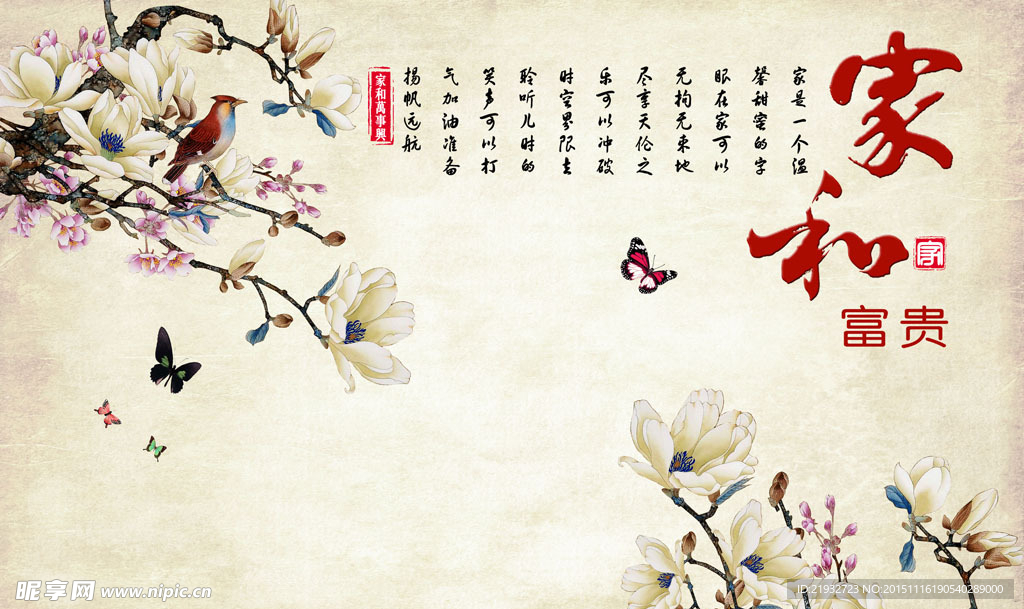 家和
富贵
家
家是一个温
馨甜蜜的字
眼在家可以
无拘无束地
尽享天伦之
乐可以冲破
时空界限去
聆听儿时的
笑声可以打
气加油准备
扬帆远航
家和萬事興
昵享网 www.nipic.cn
ID:21932723 NO:20151116190540289000